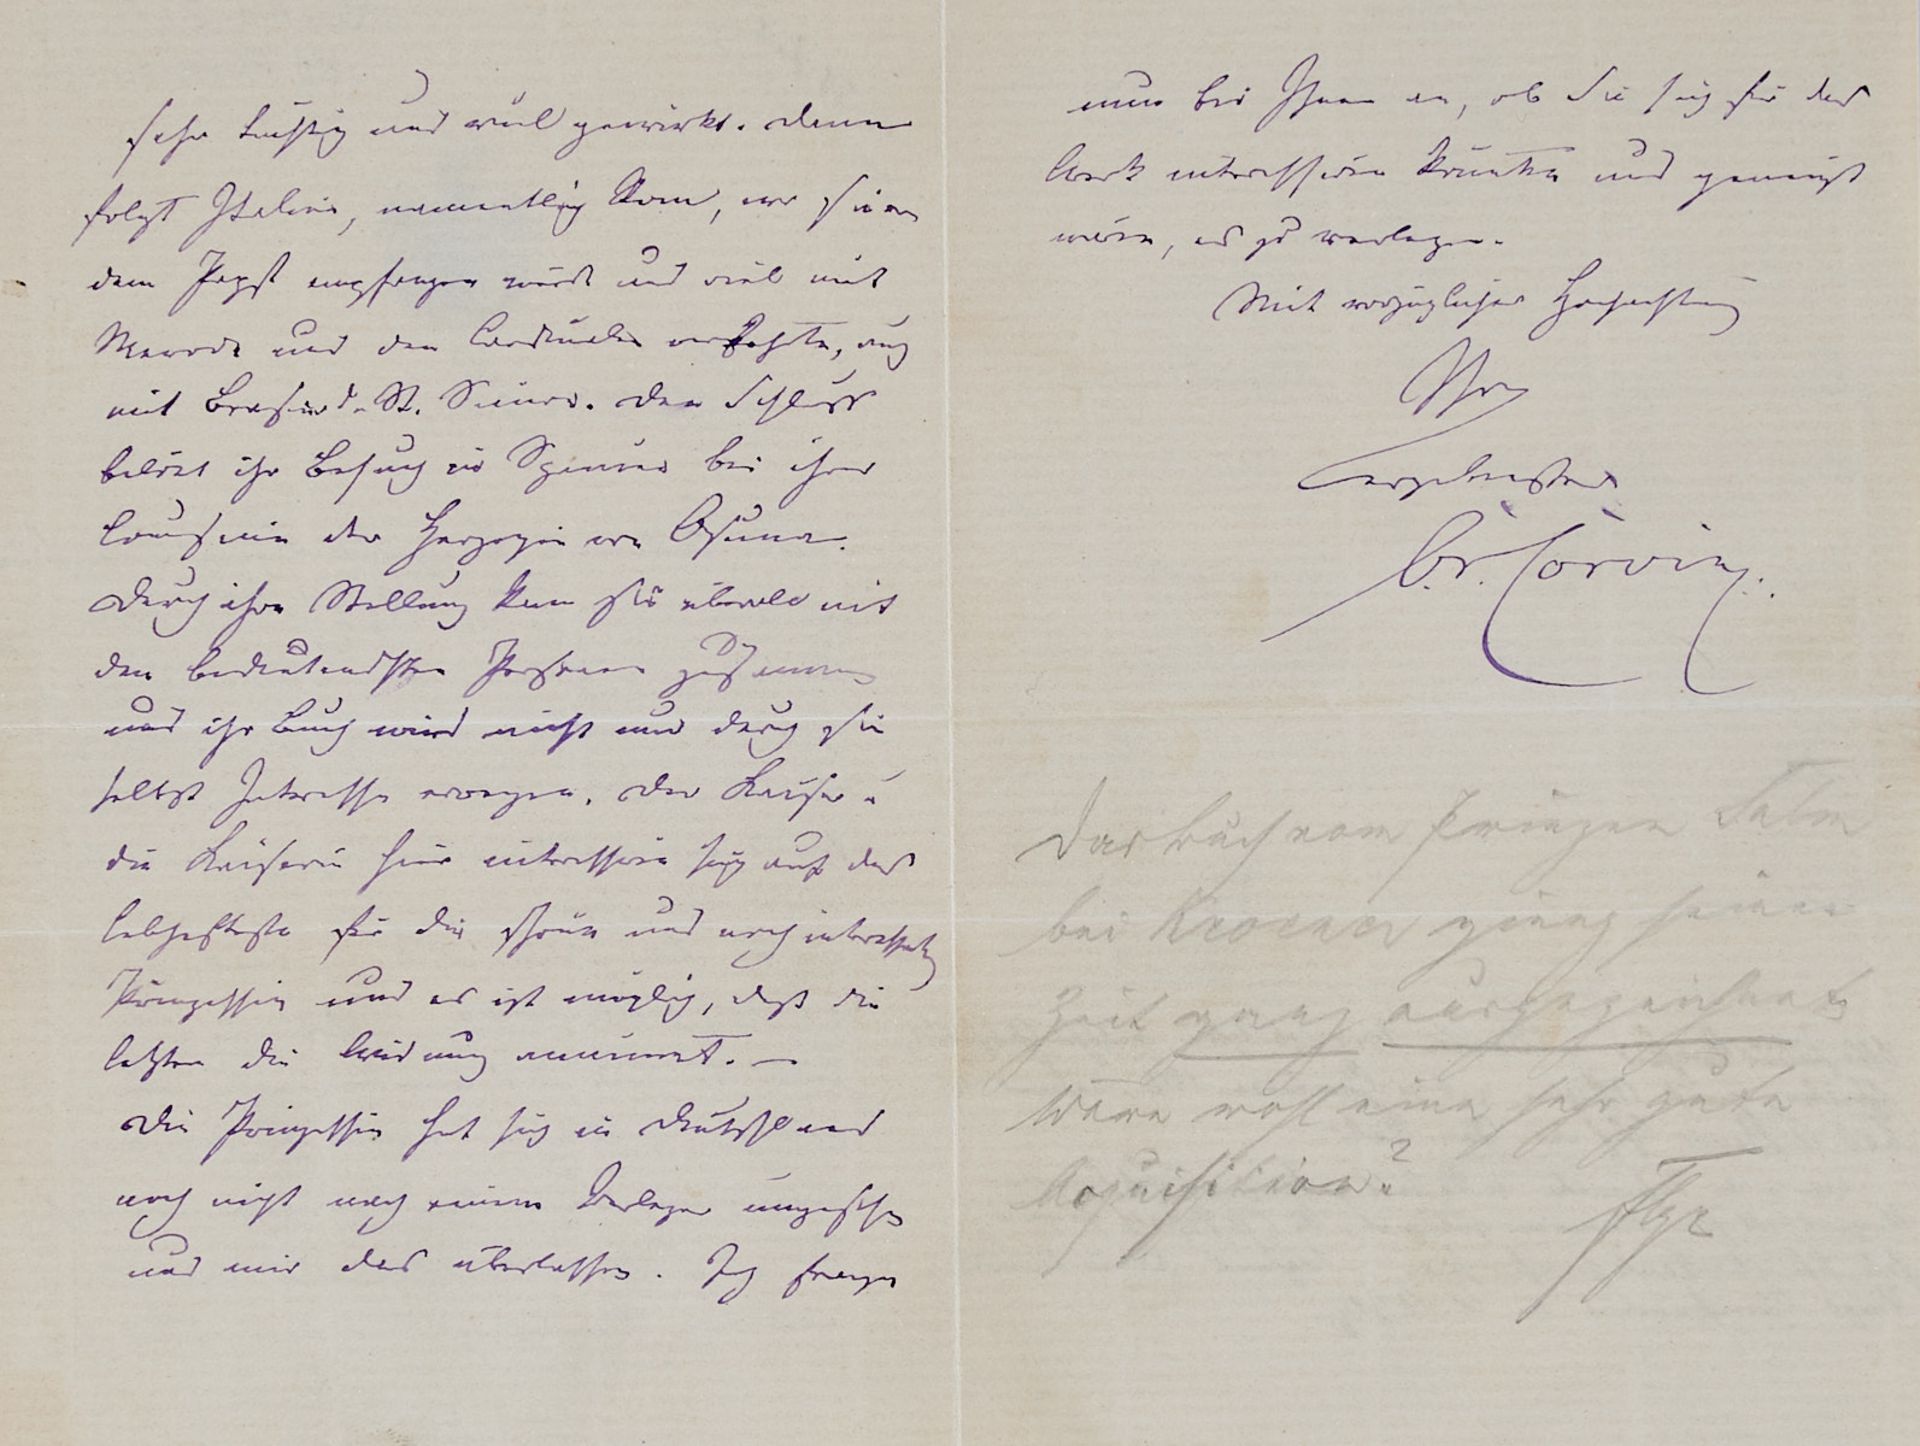 sehr tüchtig und viel gewirkt. Dann
folgt Italien, namentlich Rom, wo sie von
dem Papst empfangen wurde und viel mit
Merode und den Cardinälen verkehrte, auch
mit Brassier d. St. Simon. Den Schluss
bildet ihr Besuch in Spanien bei ihrer
Cousine der Herzogin von Osuna.
Durch ihre Stellung kam sie überall mit
den bedeutendsten Personen zusammen
und ihr Buch wird nicht nur durch sie
selbst Interesse erregen. Der Kaiser u
die Kaiserin hier interessiren sich auf das
lebhafteste für die schöne und noch interessante
Prinzessin und es ist möglich, daß die
letztere die Widmung annimmt. —
Die Prinzessin hat sich in Deutschland
noch nicht nach einem Verleger umgesehen
und mir das überlassen. Ich frage
nun bei Ihnen an, ob Sie sich für das
Werk interessiren könnten und geneigt
wären, es zu verlegen.
Mit vorzüglicher Hochachtung
Ihr
ergebenster
Corvin
Das Buch vom Prinzen Salm
bei Kroener ging seiner
Zeit ganz ausgezeichnet
Wäre wohl eine sehr gute
Acquisition?